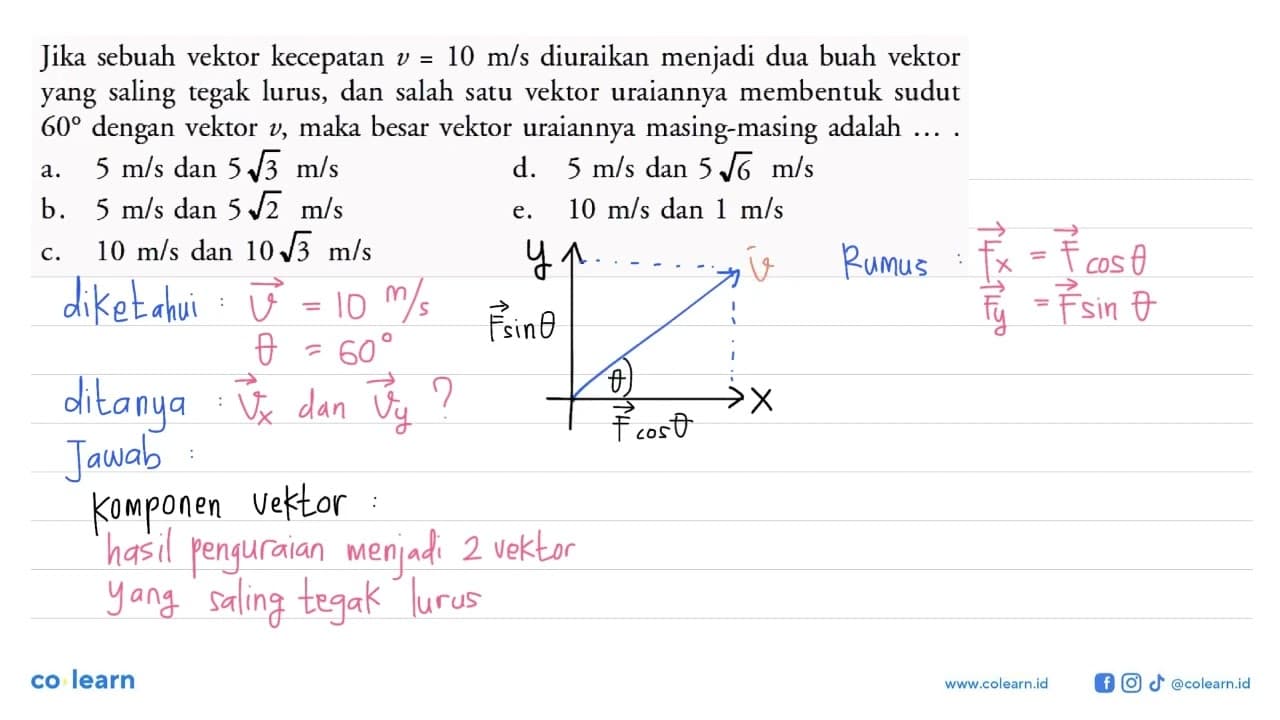 Jika sebuah vektor kecepatan v = 10 m/s diuraikan menjadi dua buah vektor
yang saling tegak lurus, dan salah satu vektor uraiannya membentuk sudut
60° dengan vektor v, maka besar vektor uraiannya masing-masing adalah ... .
a. 5 m/s dan 5√3 m/s
d. 5 m/s dan 5√6 m/s
b. 5 m/s dan 5√2 m/s
e. 10 m/s dan 1 m/s
c. 10 m/s dan 10√3 m/s
diketahui : v⃗ = 10 m/s
θ = 60°
ditanya : v⃗x dan v⃗y ?
Jawab :
Komponen vektor :
hasil penguraian menjadi 2 vektor
yang saling tegak lurus
y
v⃗
F⃗ sin θ
θ
x
F⃗ cos θ
Rumus : F⃗x = F⃗ cos θ
F⃗y = F⃗ sin θ
co learn
www.colearn.id
@colearn.id